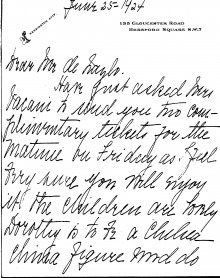 June 25 - 1924
KENSINGTON 5170
133 GLOUCESTER ROAD
HEREFORD SQUARE S.W.7
Dear Mr de
Have just asked Mrs
Vacani to send you two com-
plimentary tickets for the
Matinee on Friday as I feel
very sure you will enjoy
it. The children are lovely
Dorothy is to be a Chelsea
China figure and do